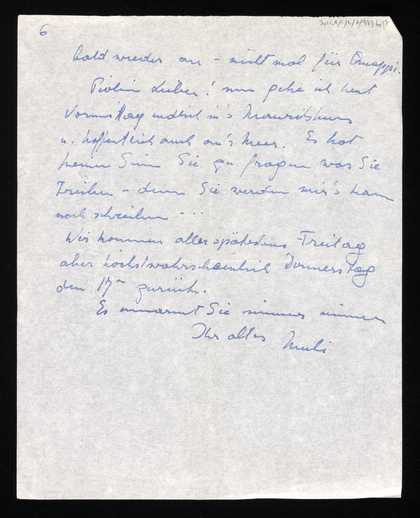 6
bald wieder an – nicht mal für
lieber! nun gehe ich heut
Vormittag endlich in's Mauritshuis
u. hoffentlich auch an's Meer. Es hat
keinen Sinn Sie zu fragen was Sie
treiben – denn Sie werden mir's kaum
noch schreiben ...
Wir kommen allerspätestens Freitag
aber höchstwahrscheinlich Donnerstag
den 17ten zurück.
Es umarmt Sie immer immer
Ihr altes